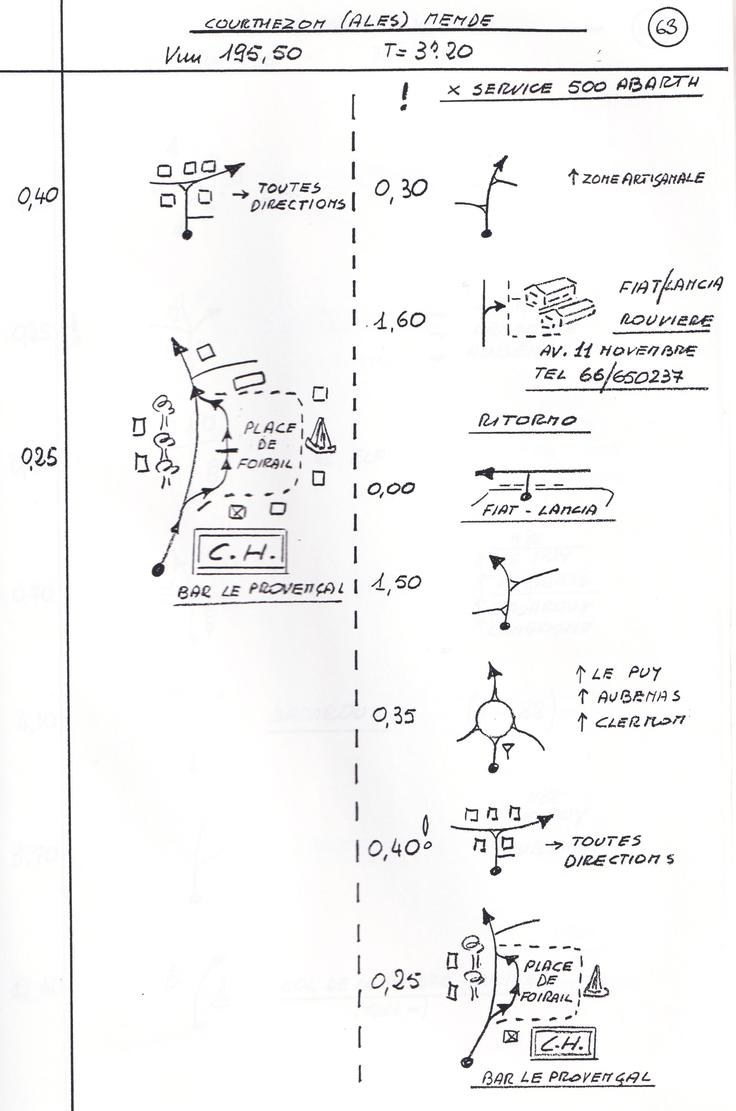 COURTHEZON (ALES) MENDE
63
Vm 195,50 T= 3h20
! x SERVICE 500 ABARTH
0,40
→ TOUTES
DIRECTIONS
0,25
PLACE
DE
FOIRAIL
C.H.
BAR LE PROVENÇAL
0,30
↑ ZONE ARTISANALE
1,60
FIAT/LANCIA
ROUVIERE
AV. 11 NOVEMBRE
TEL 66/650237
RITORNO
0,00
FIAT - LANCIA
1,50
0,35
↑ LE PUY
↑ AUBENAS
↑ CLERMON
0,40 !
→ TOUTES
DIRECTIONS
0,25
PLACE
DE
FOIRAIL
C.H.
BAR LE PROVENÇAL